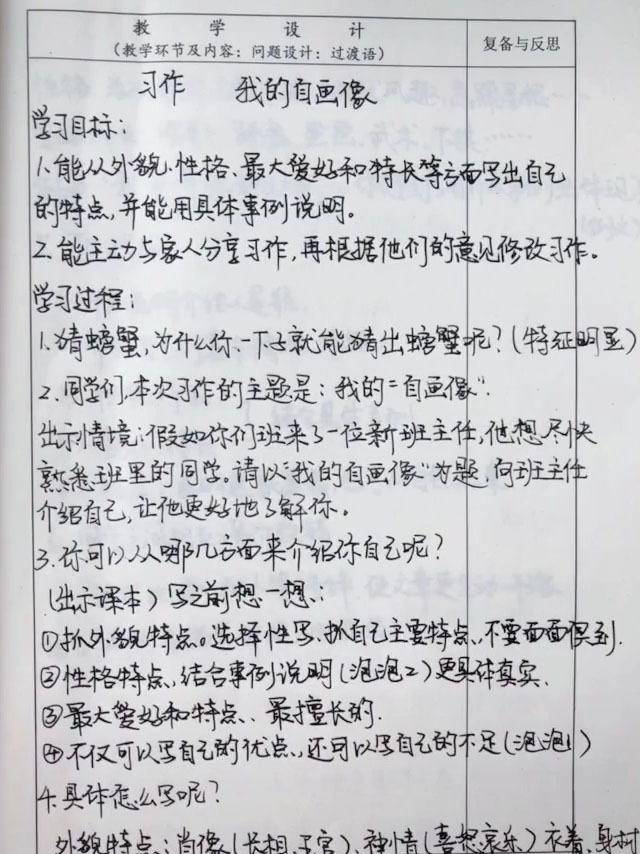 教 学 设 计
(教学环节及内容：问题设计：过渡语)
复备与反思
习作 我的自画像
学习目标：
1.能从外貌、性格、最大爱好和特长等方面写出自己
的特点，并能用具体事例说明。
2.能主动与家人分享习作，再根据他们的意见修改习作。
学习过程：
1.猜螃蟹，为什么你一下子就能猜出螃蟹呢？(特征明显)
2.同学们，本次习作的主题是：我的“自画像”.
出示情境：假如你们班来了一位新班主任，他想尽快
熟悉班里的同学。请以“我的自画像”为题，向班主任
介绍自己，让他更好地了解你。
3.你可以从哪几方面来介绍你自己呢？
(出示课本)写之前想一想：
①抓外貌特点。选择性写、抓自己主要特点、不要面面俱到.
②性格特点、结合事例说明(泡泡2)更具体真实.
③最大爱好和特点、最擅长的.
④不仅可以写自己的优点、还可以写自己的不足(泡泡1)
4.具体怎么写呢？
外貌特点：肖像(长相、五官)、神情(喜怒哀乐)衣着、身材